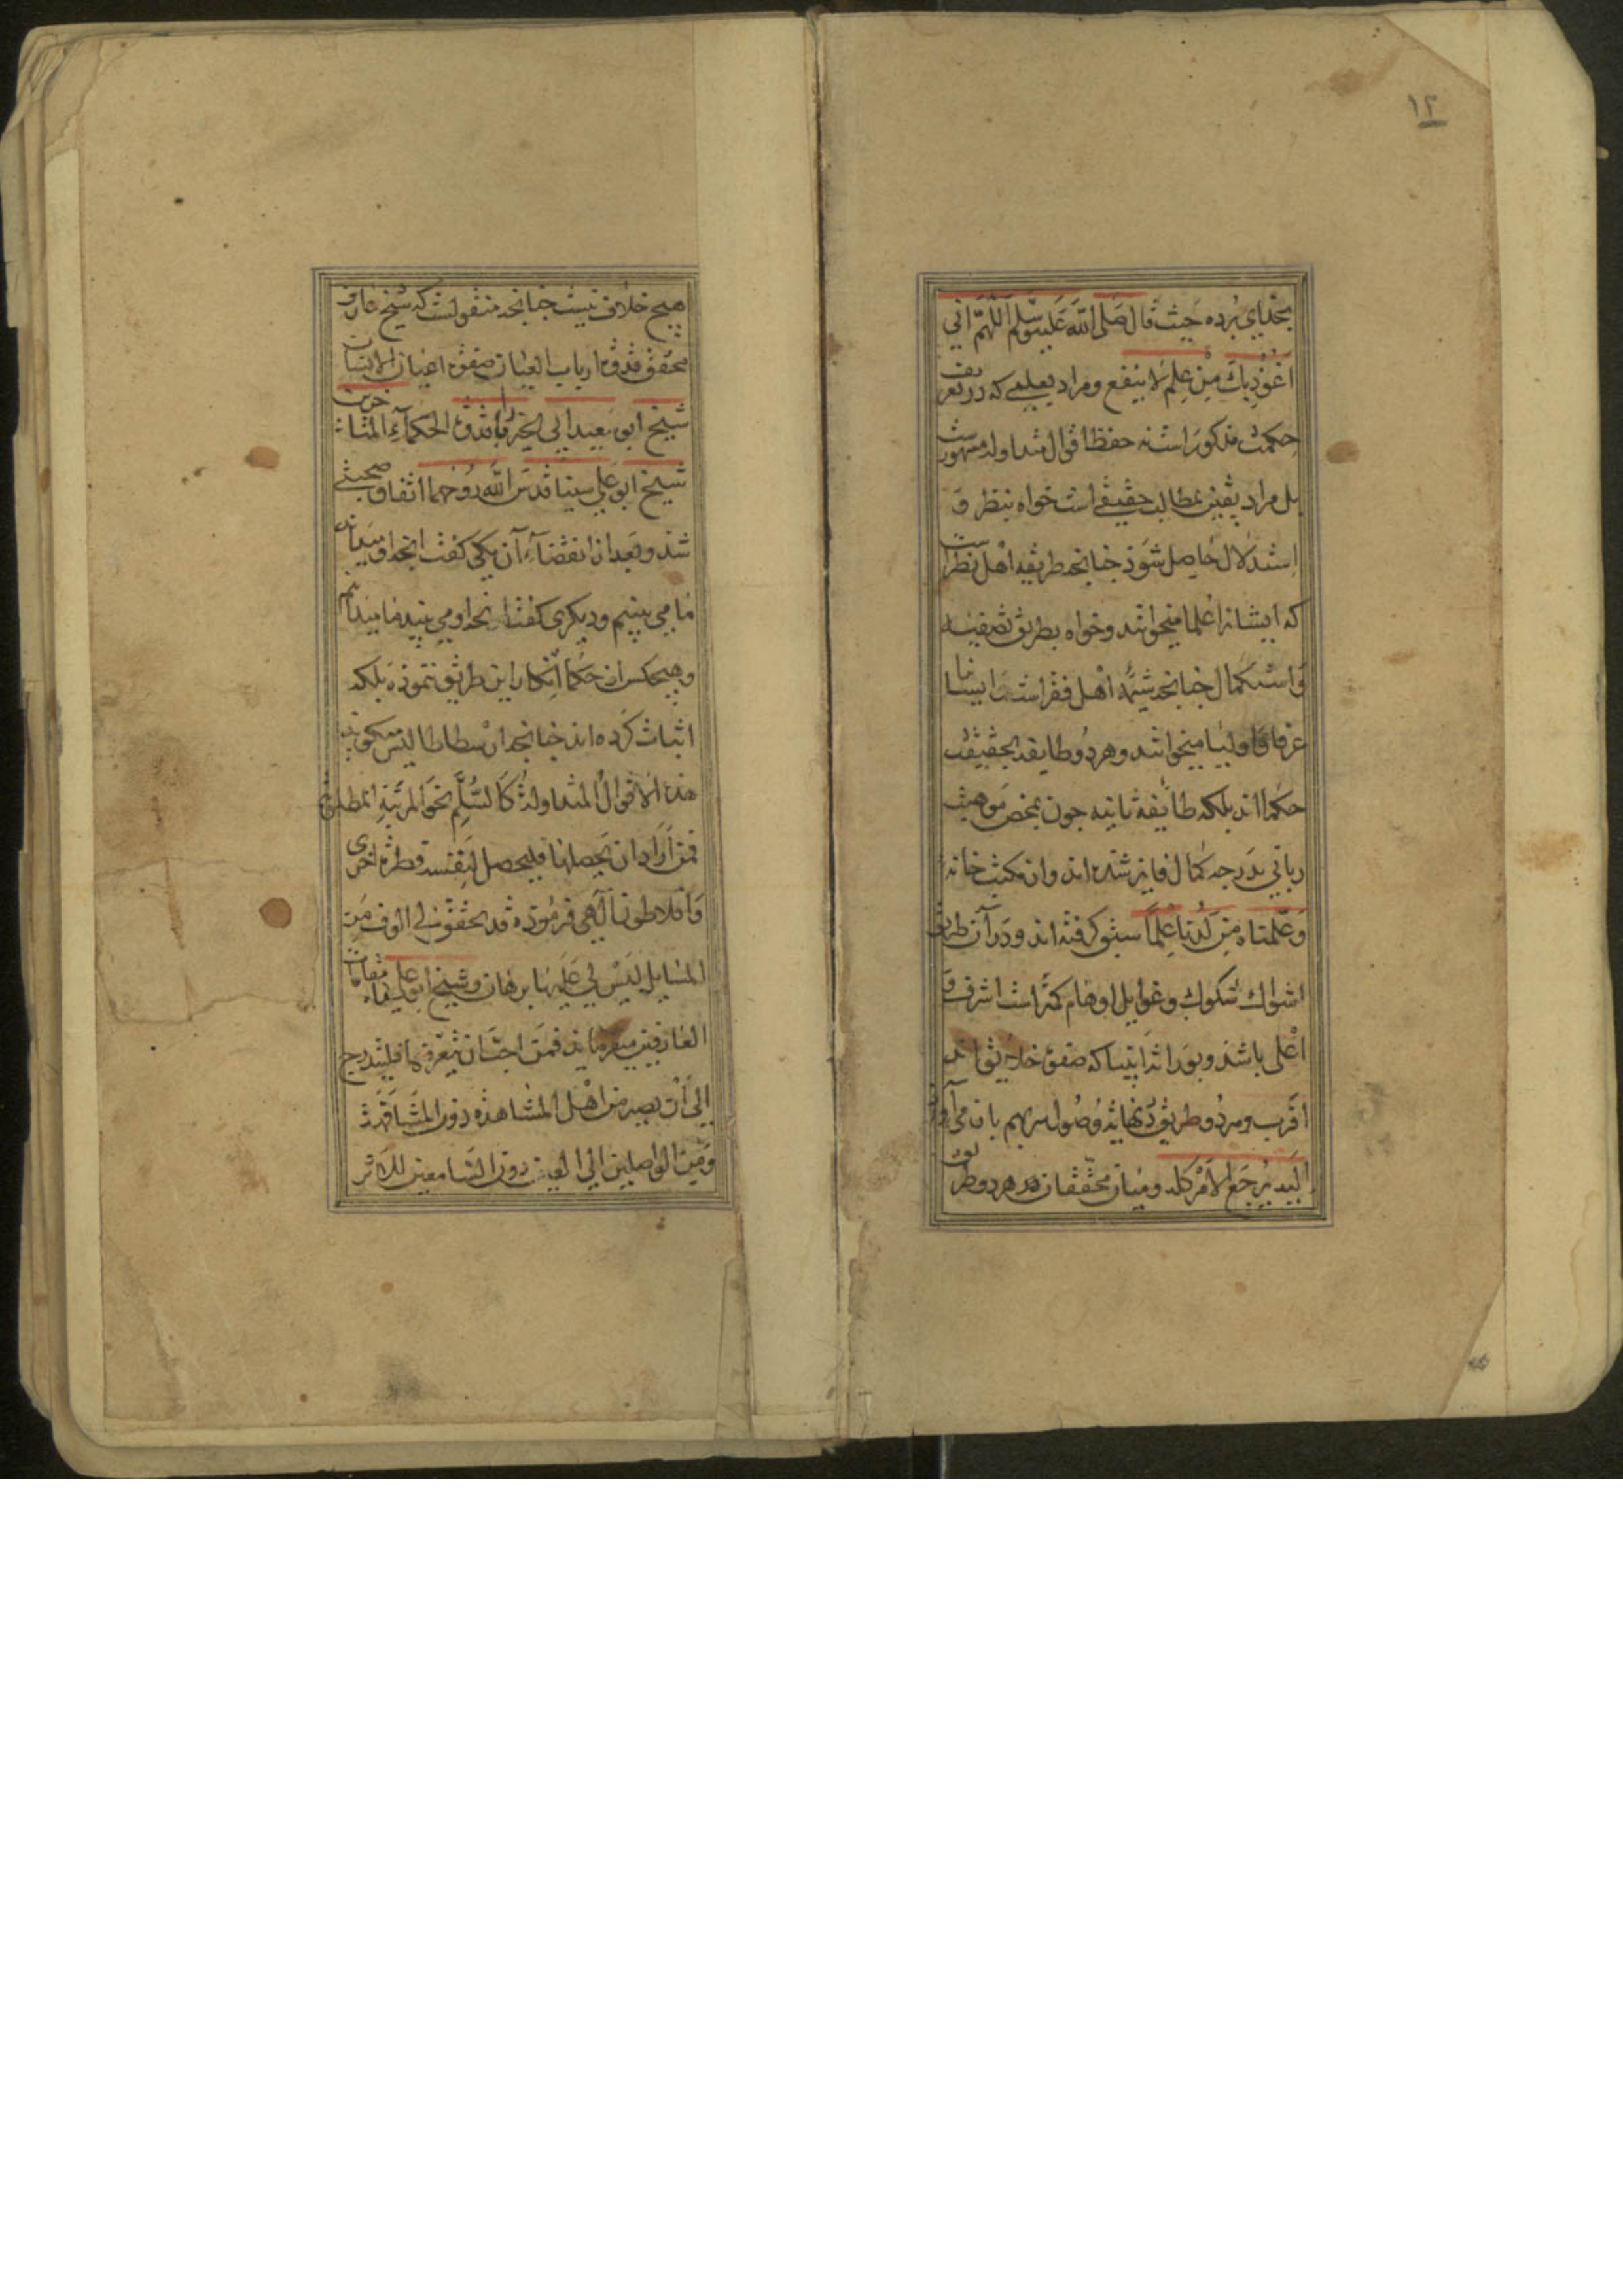 ۱۲
بخدای برده حیث قال صلی الله علیه وسلم اللهم انی
اعوذ بك من علم لا ینفع ومراد بعلمی که در تعریف
حکمت مذکور است نه حفظ اقوال متداوله مشهورست
بل مراد یقین بمطالب حقیقی است خواه بنظر و
استدلال حاصل شود چنانچه طریقه اهل نظرست
که ایشانرا علما میخوانند وخواه بطریق تصفیه
واستکمال چنانچه شیمه اهل فقراست وایشانرا
عرفا واولیا میخوانند وهر دو طایفه بحقیقت
حکما اند بلکه طایفه ثانیه چون بمحض موهبت
ربانی بدرجه کمال فایز شده اند واز مکتب خانه
وعلمناه من لدنا علما سبق گرفته اند ودر آن طریق
اشواك شکوك وغوایل اوهام کمتر است اشرف و
اعلی باشد وبوراثت انبیا که صفوة خلایق اند
اقرب وهر دو طریق در نهایت وصول سر بهم باز می آورند
الیه یرجع الامر کله ومیان محققان هر دو طریق
هیچ خلاف نیست چنانچه منقولست که شیخ عارف
محقق قدوة ارباب العیان صفوة اعیان الانسان
شیخ ابو سعید ابی الخیر را با قدوة الحکماء المتاخرین
شیخ ابو علی سینا قدس الله روحهما اتفاق صحبتی
شد وبعد از انقضاء آن یکی گفت آنچه او میداند
ما می بینیم ودیگری گفت آنچه او می بیند ما میدانیم
وهیچکس از حکما انکار این طریق ننموده بلکه
اثبات کرده اند چنانچه ارسطاطالیس میگوید
هذه الاقوال المتداولة كالسلم نحو المرتبة المطلوبة
فمن اراد ان یحصلها فلیحصل لنفسه فطرة اخری
وافلاطون الهی فرموده قد تحقق لی الوف من
المسایل لیس لی علیها برهان وشیخ ابو علی در مقامات
العارفین میفرماید فمن احب ان یتعرفها فلیتدرج
الی ان یصیر من اهل المشاهدة دون المشافهة
ومن الواصلین الی العین دون السامعین للاثر